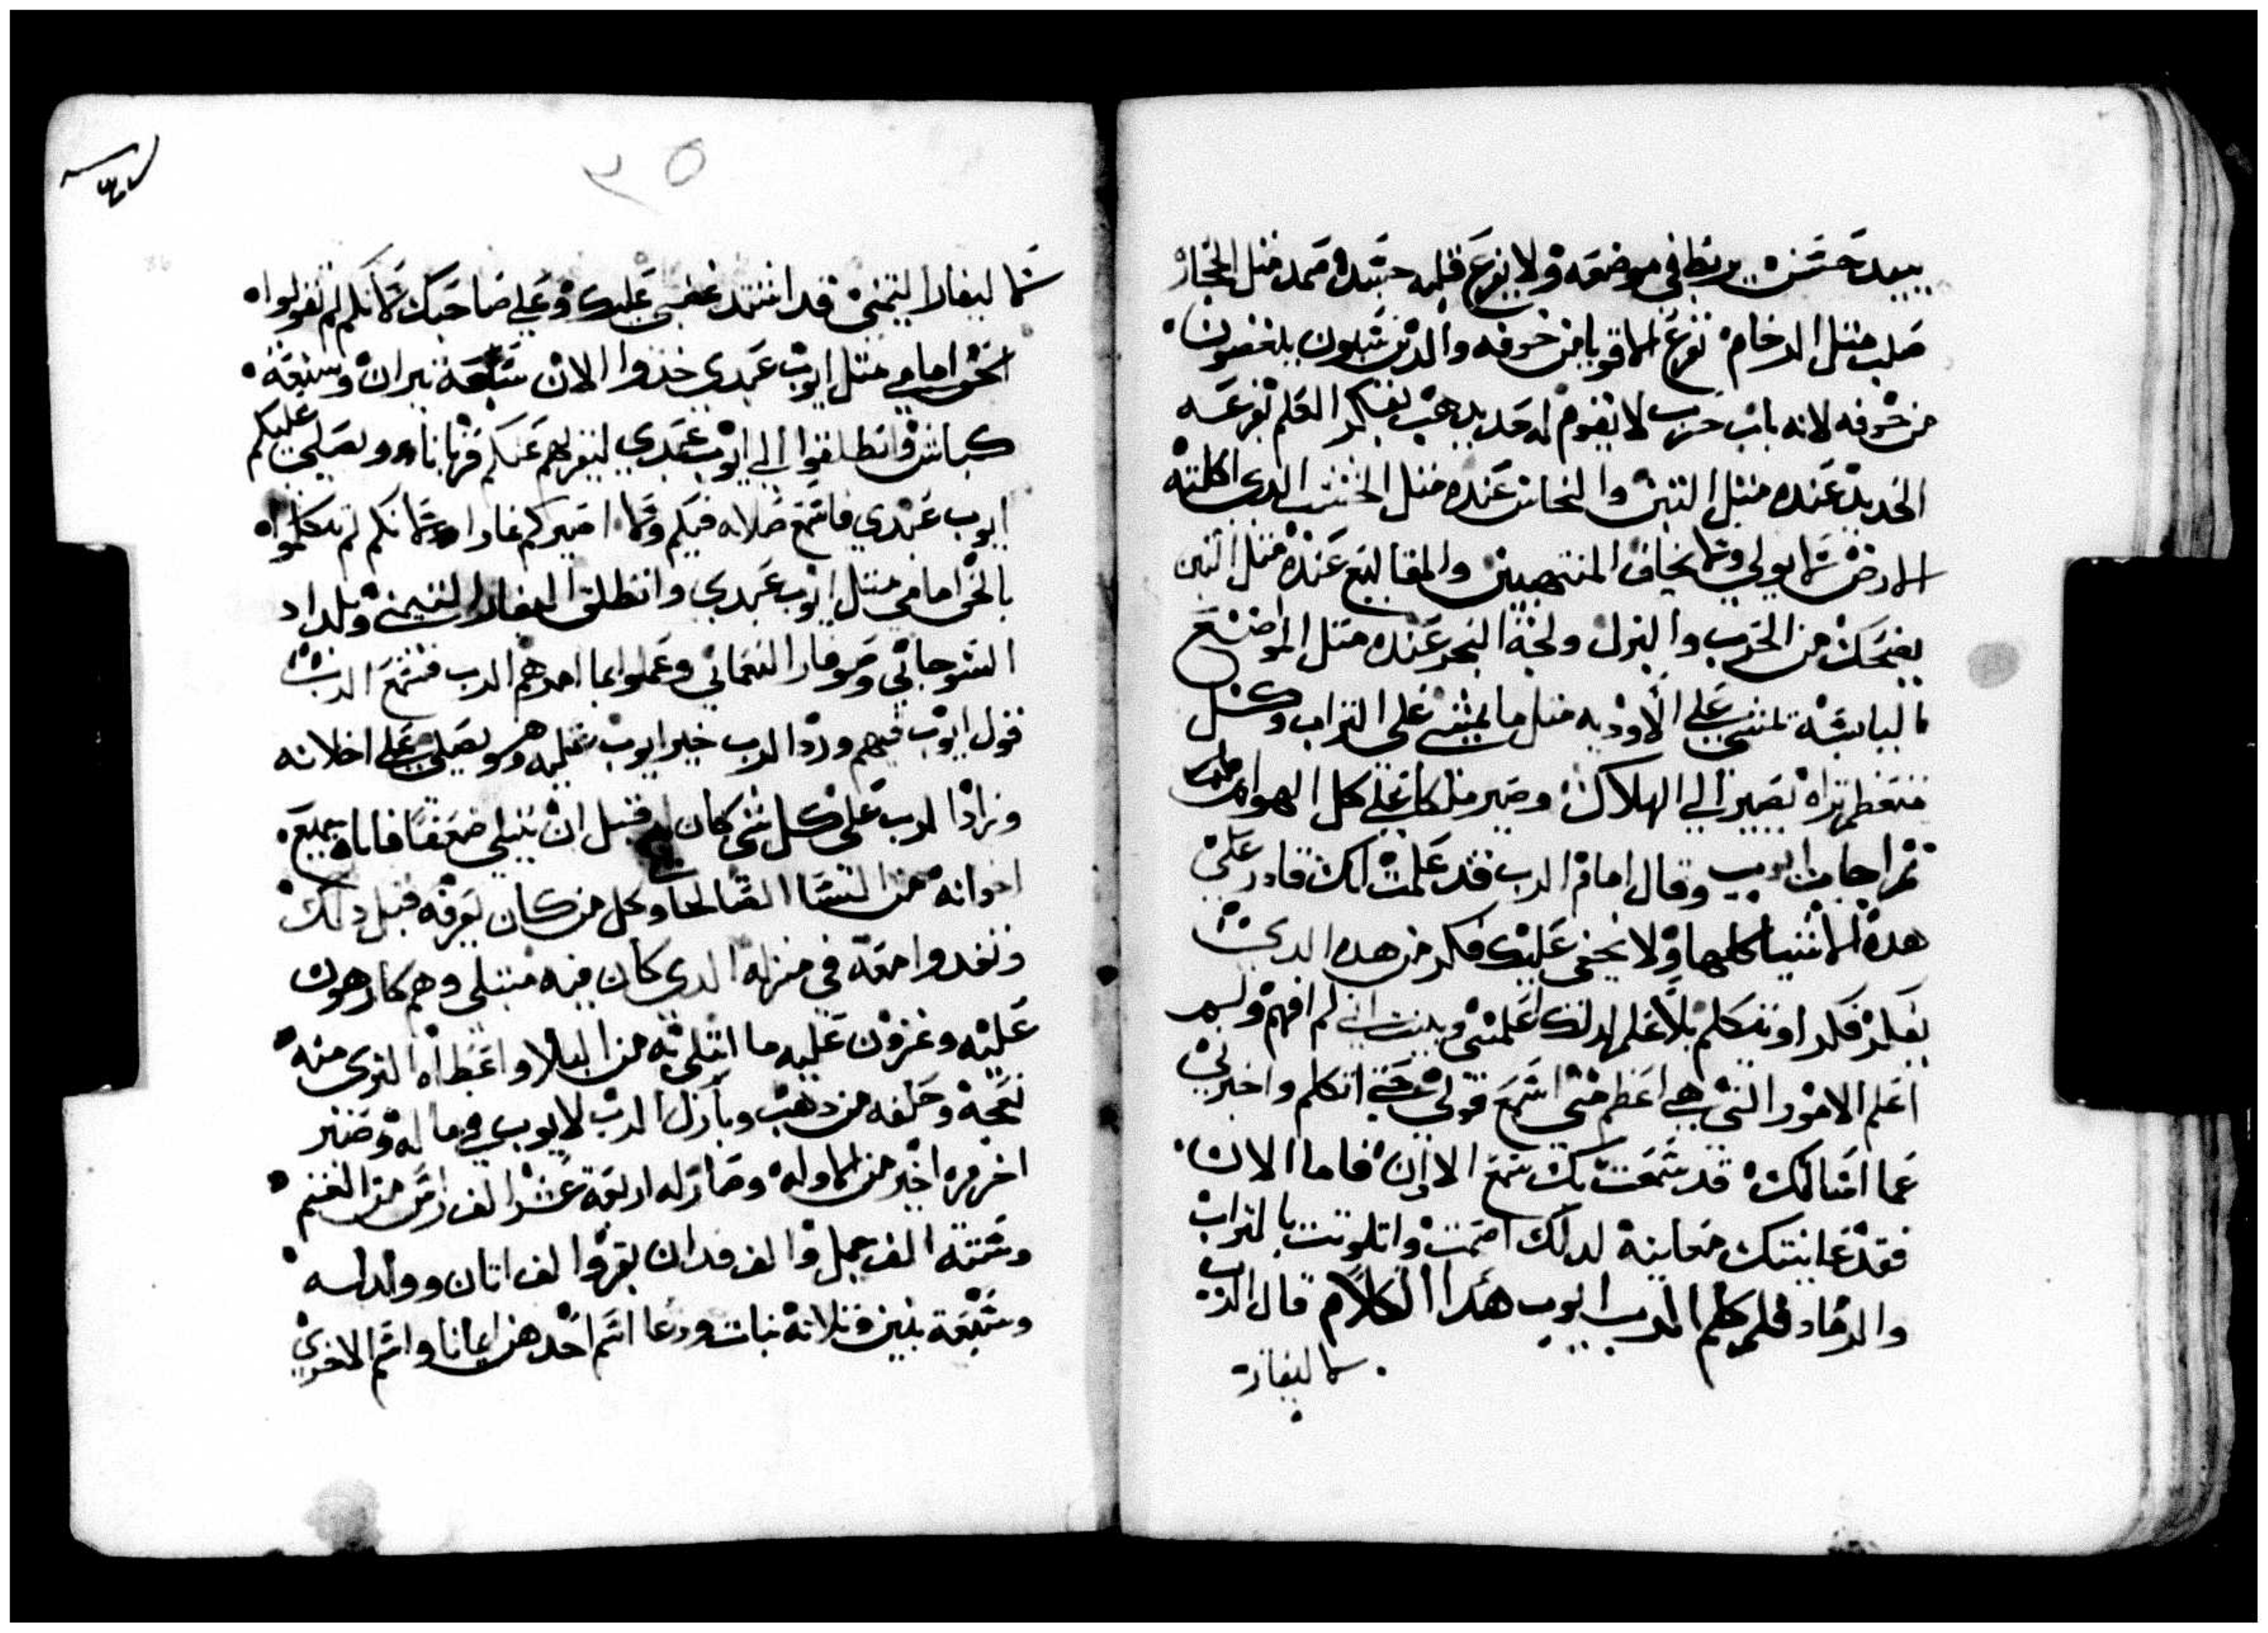 يبيد حسن يربط في موضعه ولا يفزع قلبه جسده صمد مثل الحجار
صلب مثل الرخام تفزع الاقويا من خوفه والدين شلون يلغضون
من خوفه لانه باب حرب لا يقوم له حد يدهب بفكر العلم تفزعه
الحديد عنده مثل التبن والنحاس عنده مثل الخشب الدي اكلته
الارض لا يولي ولا يخاف المنتهبين والمقاليع عنده مثل التبن
يضحك من الحرب والنزل ولجة البحر عنده مثل المواضع
اليابسة تمشي علي الاوديه مثل ما يمشي علي التراب وكل
متعظم تراه تصير الي الهلاك وصير ملكا علي كل الهوام
تم اجاب ايوب وقال امام الرب قد علمت انك قادر علي
هده الاشيا كلها ولا يخفي عليك فكر من هدا الدي
يفكر فكرا ويتكلم بلا علم لدلك اعلمتني وبينت اني لم افهم ولم
اعلم الامور التي هي اعظم مني اسمع قولي حتي اتكلم واخبرني
عما اسالك قد سمعت بك سمع الادان فاما الان
فقد عاينتك معاينة لدلك اصمت واتلوتت بالتراب
والرماد فلم كلم الرب ايوب هدا الكلام قال الرب
لاليفاز
لاليفاز التيمني قد اشتد غضبي عليك وعلي صاحبك لانكم لم تقولوا
الحق امامي مثل ايوب عبدي خدوا الان سبعة تيران وسبعة
كباش وانطلقوا الي ايوب عبدي ليقربهم عنكم قربانا ويصلي عليكم
ايوب عبدي فاسمع صلاه فيكم ولا اصيركم عارا لانكم لم تتكلموا
بالحق امامي مثل ايوب عبدي وانطلق اليفاز التيمني وبلداد
الشوحاني وصوفار النعماني وعملوا بما امرهم الرب فسمع الرب
قول ايوب فيهم ورد الرب خير ايوب عليه وهو يصلي علي اخلانه
وزاد الرب علي كل شي كان له قبل ان يبتلي ضعفا فاتاه جميع
اخوانه من النسا الصالحا وكل من كان يعرفه قبل دلك
وتغدوا معه في منزله الدي كان فيه مبتلي وهم كارهون
عليه وعزون عليه ما ابتلي به من البلا واعطاه الدي منه
نعجة وحلقه من دهب وبارك الرب لايوب في ماله وصير
اخر مره اخير من الاوله وصار له اربعة عشر الف راس من الغنم
وستته الف جمل والف فدان بقر والف اتان وولد له
وسبعة بنين وتلاتة بنات ودعا اسم احدهن ايمانا واسم الاخري